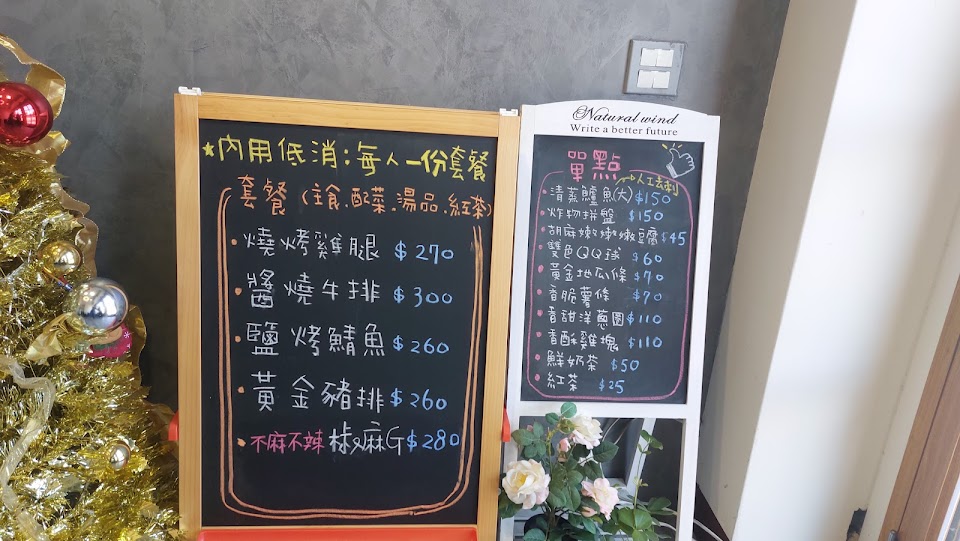 ★內用低消:每人一份套餐
套餐(主食、配菜、湯品、紅茶)
• 燒烤雞腿 $270
• 醬燒牛排 $300
• 鹽烤鯖魚 $260
• 黃金豬排 $260
• 不麻不辣 椒麻G $280
Natural wind
Write a better future
單點
人工去刺
• 清蒸鱸魚(大) $150
• 炸物拼盤 $150
• 胡麻嫩嫩嫩豆腐 $45
• 雙色QQ球 $60
• 黃金地瓜條 $70
• 香脆薯條 $70
• 香甜洋蔥圈 $110
• 香酥雞塊 $110
• 鮮奶茶 $50
• 紅茶 $25